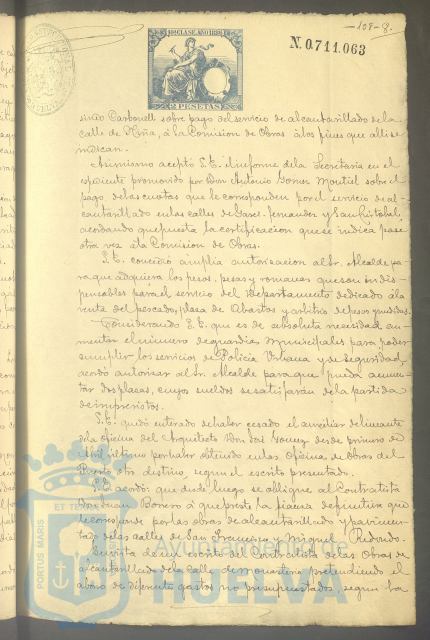 -109- 8.
10ª CLASE. AÑO 189
N. 0.711.063
2 PESETAS
Carbonell sobre pago del servicio de alcantarillado de la
calle de á la Comision de Obras á los fines que alli se
indican.
Asimismo aceptó S.E. el informe de la Secretaría en el
espediente promovido por Don Antonio Gomez Montiel sobre el
pago de las cuotas que le corresponden por el servicio de al-
cantarillado en las calles de Garci-Fernandez y San Cristobal,
acordando que puesta la certificacion que se indica pase
otra vez á la Comision de Obras.
S.E. concedió amplia autorizacion al Sr. Alcalde pa-
ra que adquiera los pesos, pesas y romanas que son indis-
pensables para el servicio del Departamento dedicado á la
venta del pescado, plaza de Abastos y arbitrio de pesos y medidas.
Considerando S.E. que es de absoluta necesidad au-
mentar el número de guardias municipales para poder
cumplir los servicios de Policia Urbana y de seguridad,
acordó autorizar al Sr. Alcalde para que pueda aumen-
tar dos plazas, cuyos sueldos se satisfarán de la partida
de imprevistos.
S.E. quedó enterado de haber cesado el auxiliar delineante
de la oficina del Arquitecto Don José Gomez desde primero de
Abril último por haber obtenido en las Oficinas de Obras del
Puerto otro destino, segun el escrito presentado.
S.E. acordó: que desde luego se obligue al Contratista
Don Juan Borrero á que preste la fianza definitiva que
le corresponde por las obras de alcantarillado y pavimen-
tado de las calles de San Francisco y Miguel Redondo.
En vista de un escrito del Contratista de las Obras de
alcantarillado de la calle de Monasterio pretendiendo el
abono de diferentes gastos no presupuestados, segun ha
PORTUS MARIS ET TE
Ayuntamiento de
HUELVA